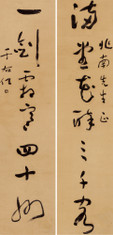 兆南先生正
滿堂花醉三千客
一劍霜寒四十州
于右任